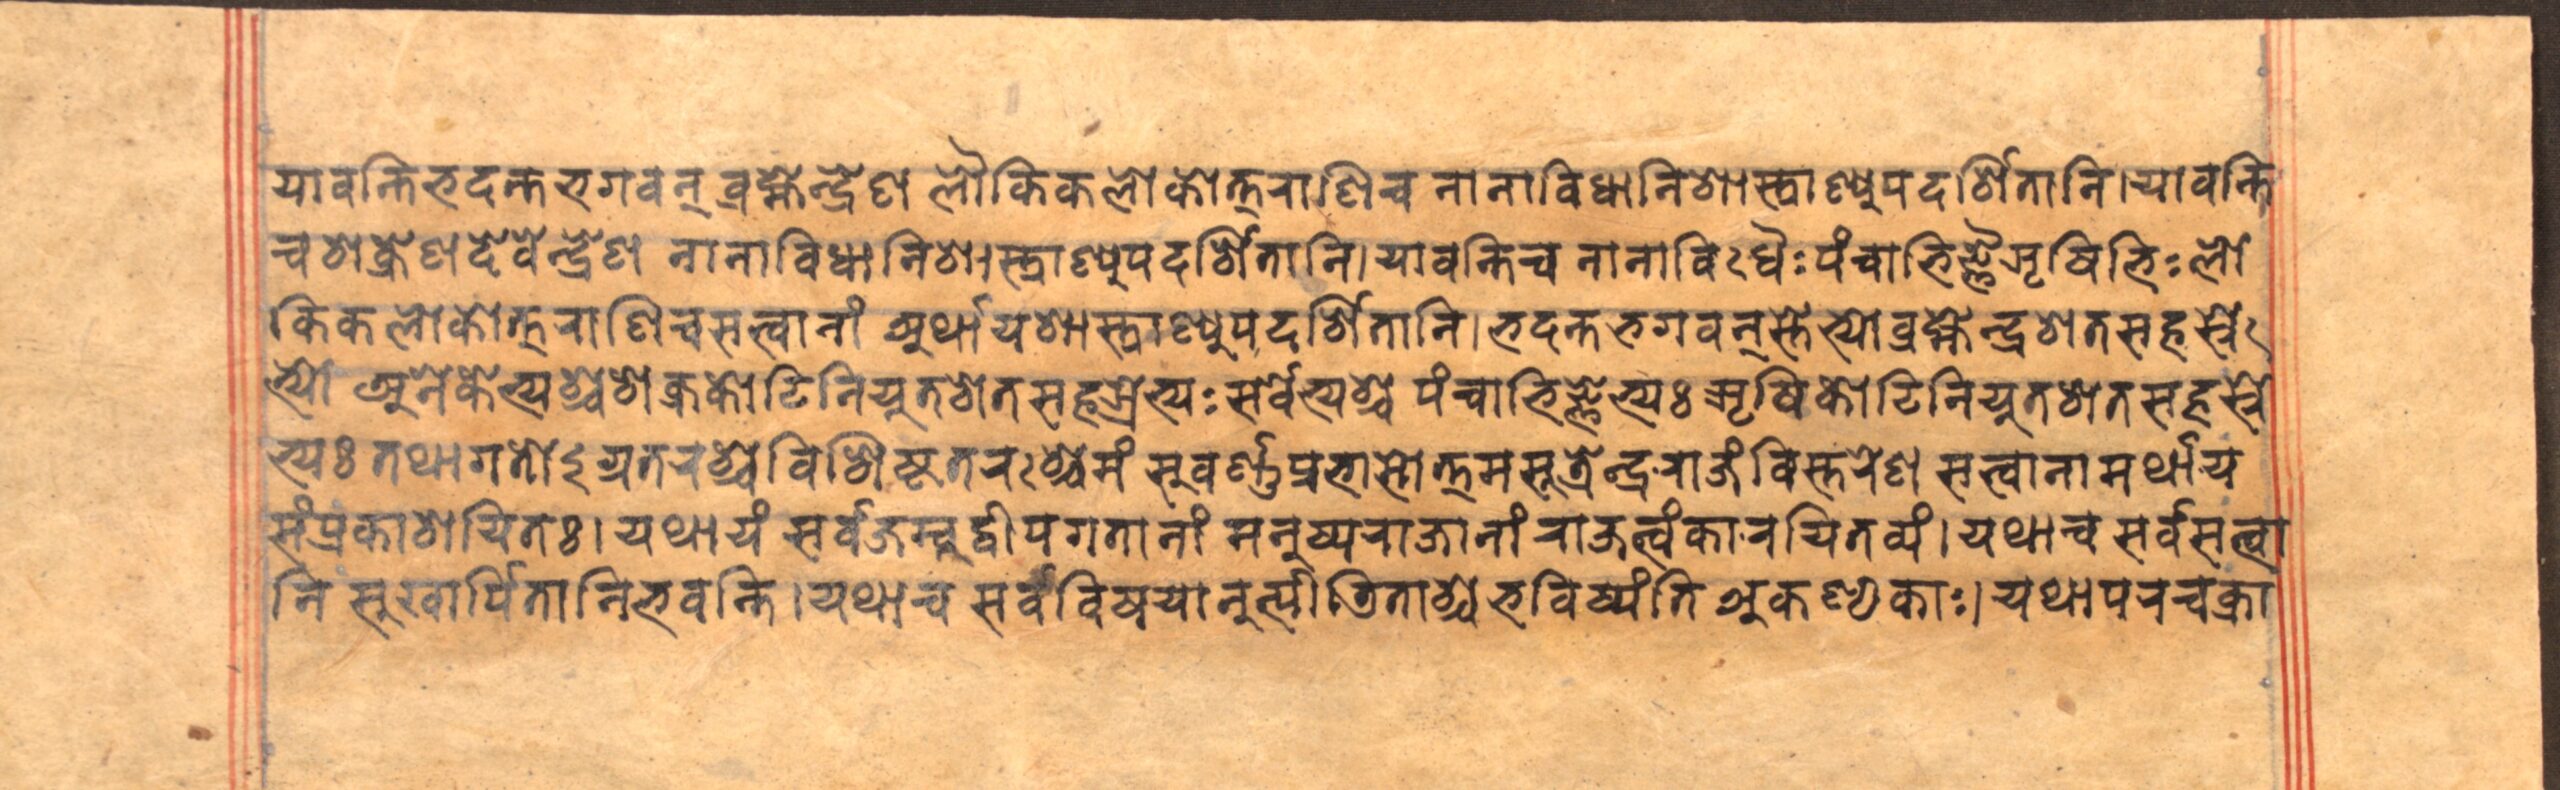 यावन्ति भदन्त भगवन् ब्रह्मेन्द्रेण लौकिकलोकोत्तराणि च नानाविधानि शास्त्राण्युपदर्शितानि। यावन्ति
च शक्रेण देवेन्द्रेण नानाविधानि शास्त्राण्युपदर्शितानि। यावन्ति च नानाविधैः पंचाभिज्ञैरृषिभिः लौ
किकलोकोत्तराणि च सत्त्वानां अर्थाय शास्त्राण्युपदर्शितानि। भदन्त भगवन्स्तेभ्यो ब्रह्मेन्द्रशतसहस्रे
भ्यो अनेकेभ्यश्च शक्रकोटिनियुतशतसहस्रेभ्यः सर्वेभ्यश्च पंचाभिज्ञेभ्यः ऋषिकोटिनियुतशतसहस्रे
भ्यः तथागतोऽग्रतरश्च विशिष्टतरश्चेमं सुवर्णप्रभासोत्तमसूत्रेन्द्रराजं विस्तरेण सत्त्वानामर्थाय
संप्रकाशयितः। यथायं सर्वजम्बुद्वीपगतानां मनुष्यराजानां राजत्वं कारयितव्यं। यथा च सर्वसत्त्वा
नि सुखार्पितानि भवन्ति। यथा च सर्वविषयानुत्पीडिताश्च भविष्यंति अकण्टकाः। यथा परचक्रा